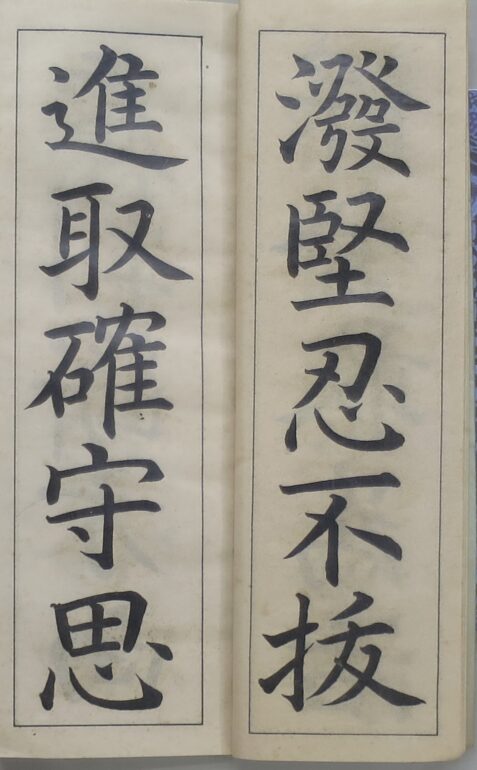 潑堅忍不拔
進取確守思